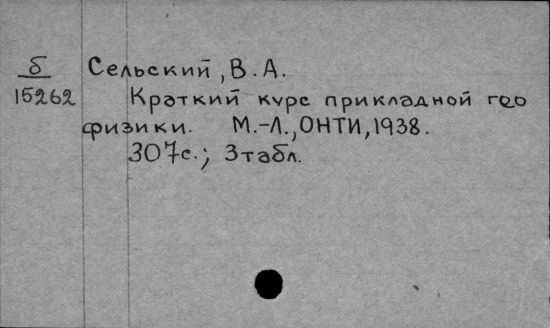 б Сельский, В.А.
15262 Краткий курс прикладной гео
физики. М.-Л., ОНТИ, 1938.
307с.; 3табл.